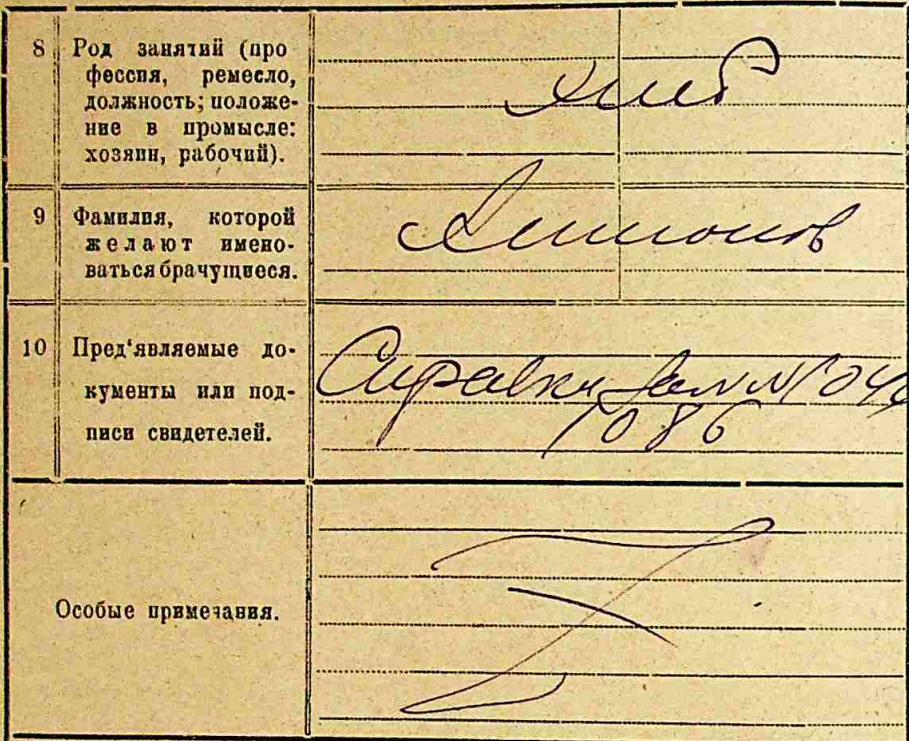 8 Род занятий (про
фессия, ремесло,
должность; положе-
ние в промысле:
хозяин, рабочий).
9 Фамилия, которой
желают имено-
ваться брачущиеся.
10 Пред'являемые до-
кументы или под-
писи свидетелей.
Справки
1086
Особые примечания.